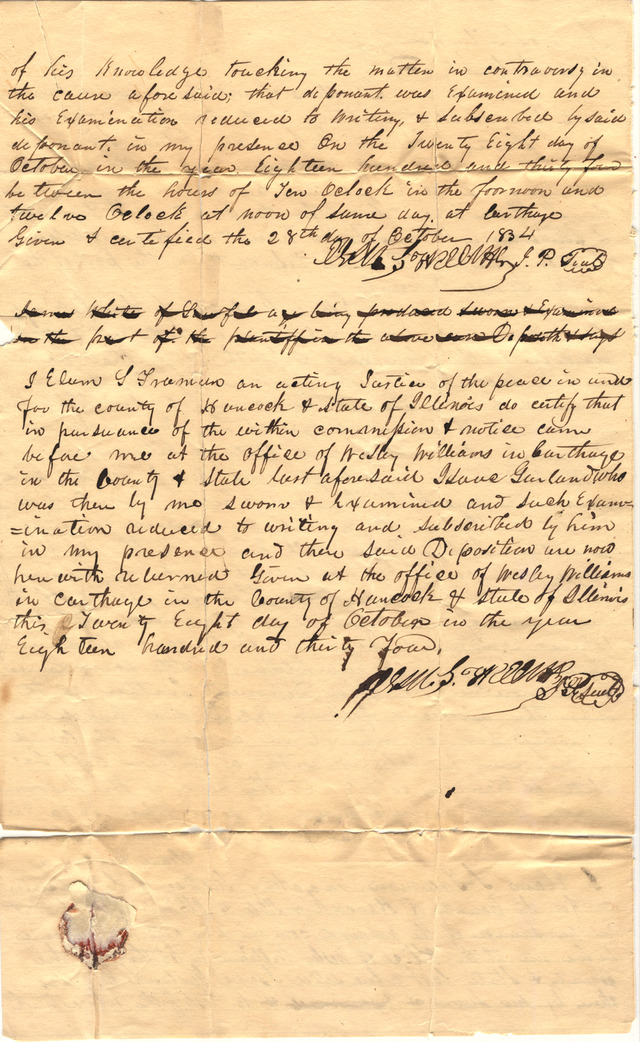 of his Knowledge touching the matter in controversy in
the cause aforesaid; that deponant was Examined and
his Examination reduced to Writing, & subscribed by said
deponant, in my presence On the Twenty Eight day of
October, in the year Eighteen hundred and thirty four
between the hours of Ten Oclock in the fornoon and
twelve Oclock at noon of same day, at Carthage
Given & certefied the 28th day of October 1834
J. P. Seal
James White of lawful age being produced sworn & Examined
on the part of the plaintiff in the above
I Elam S Freeman an acting Justice of the peace in and
for the county of Hancock & state of Illinois do certify that
in pursuance of the within commission & notice came
before me at the office of Wesley Williams in Carthage
in the County & State last aforesaid Isaac Garland who
was then by me sworn & Examined and such Exam-
=ination reduced to writing and subscribed by him
in my presence and there said Deposition are now
herewith returned Given at the office of Wesley Williams
in carthage in the County of Hancock & State of Illinois
this Twenty Eight day of October in the year
Eighteen hundred and thirty Four,
J P Seal